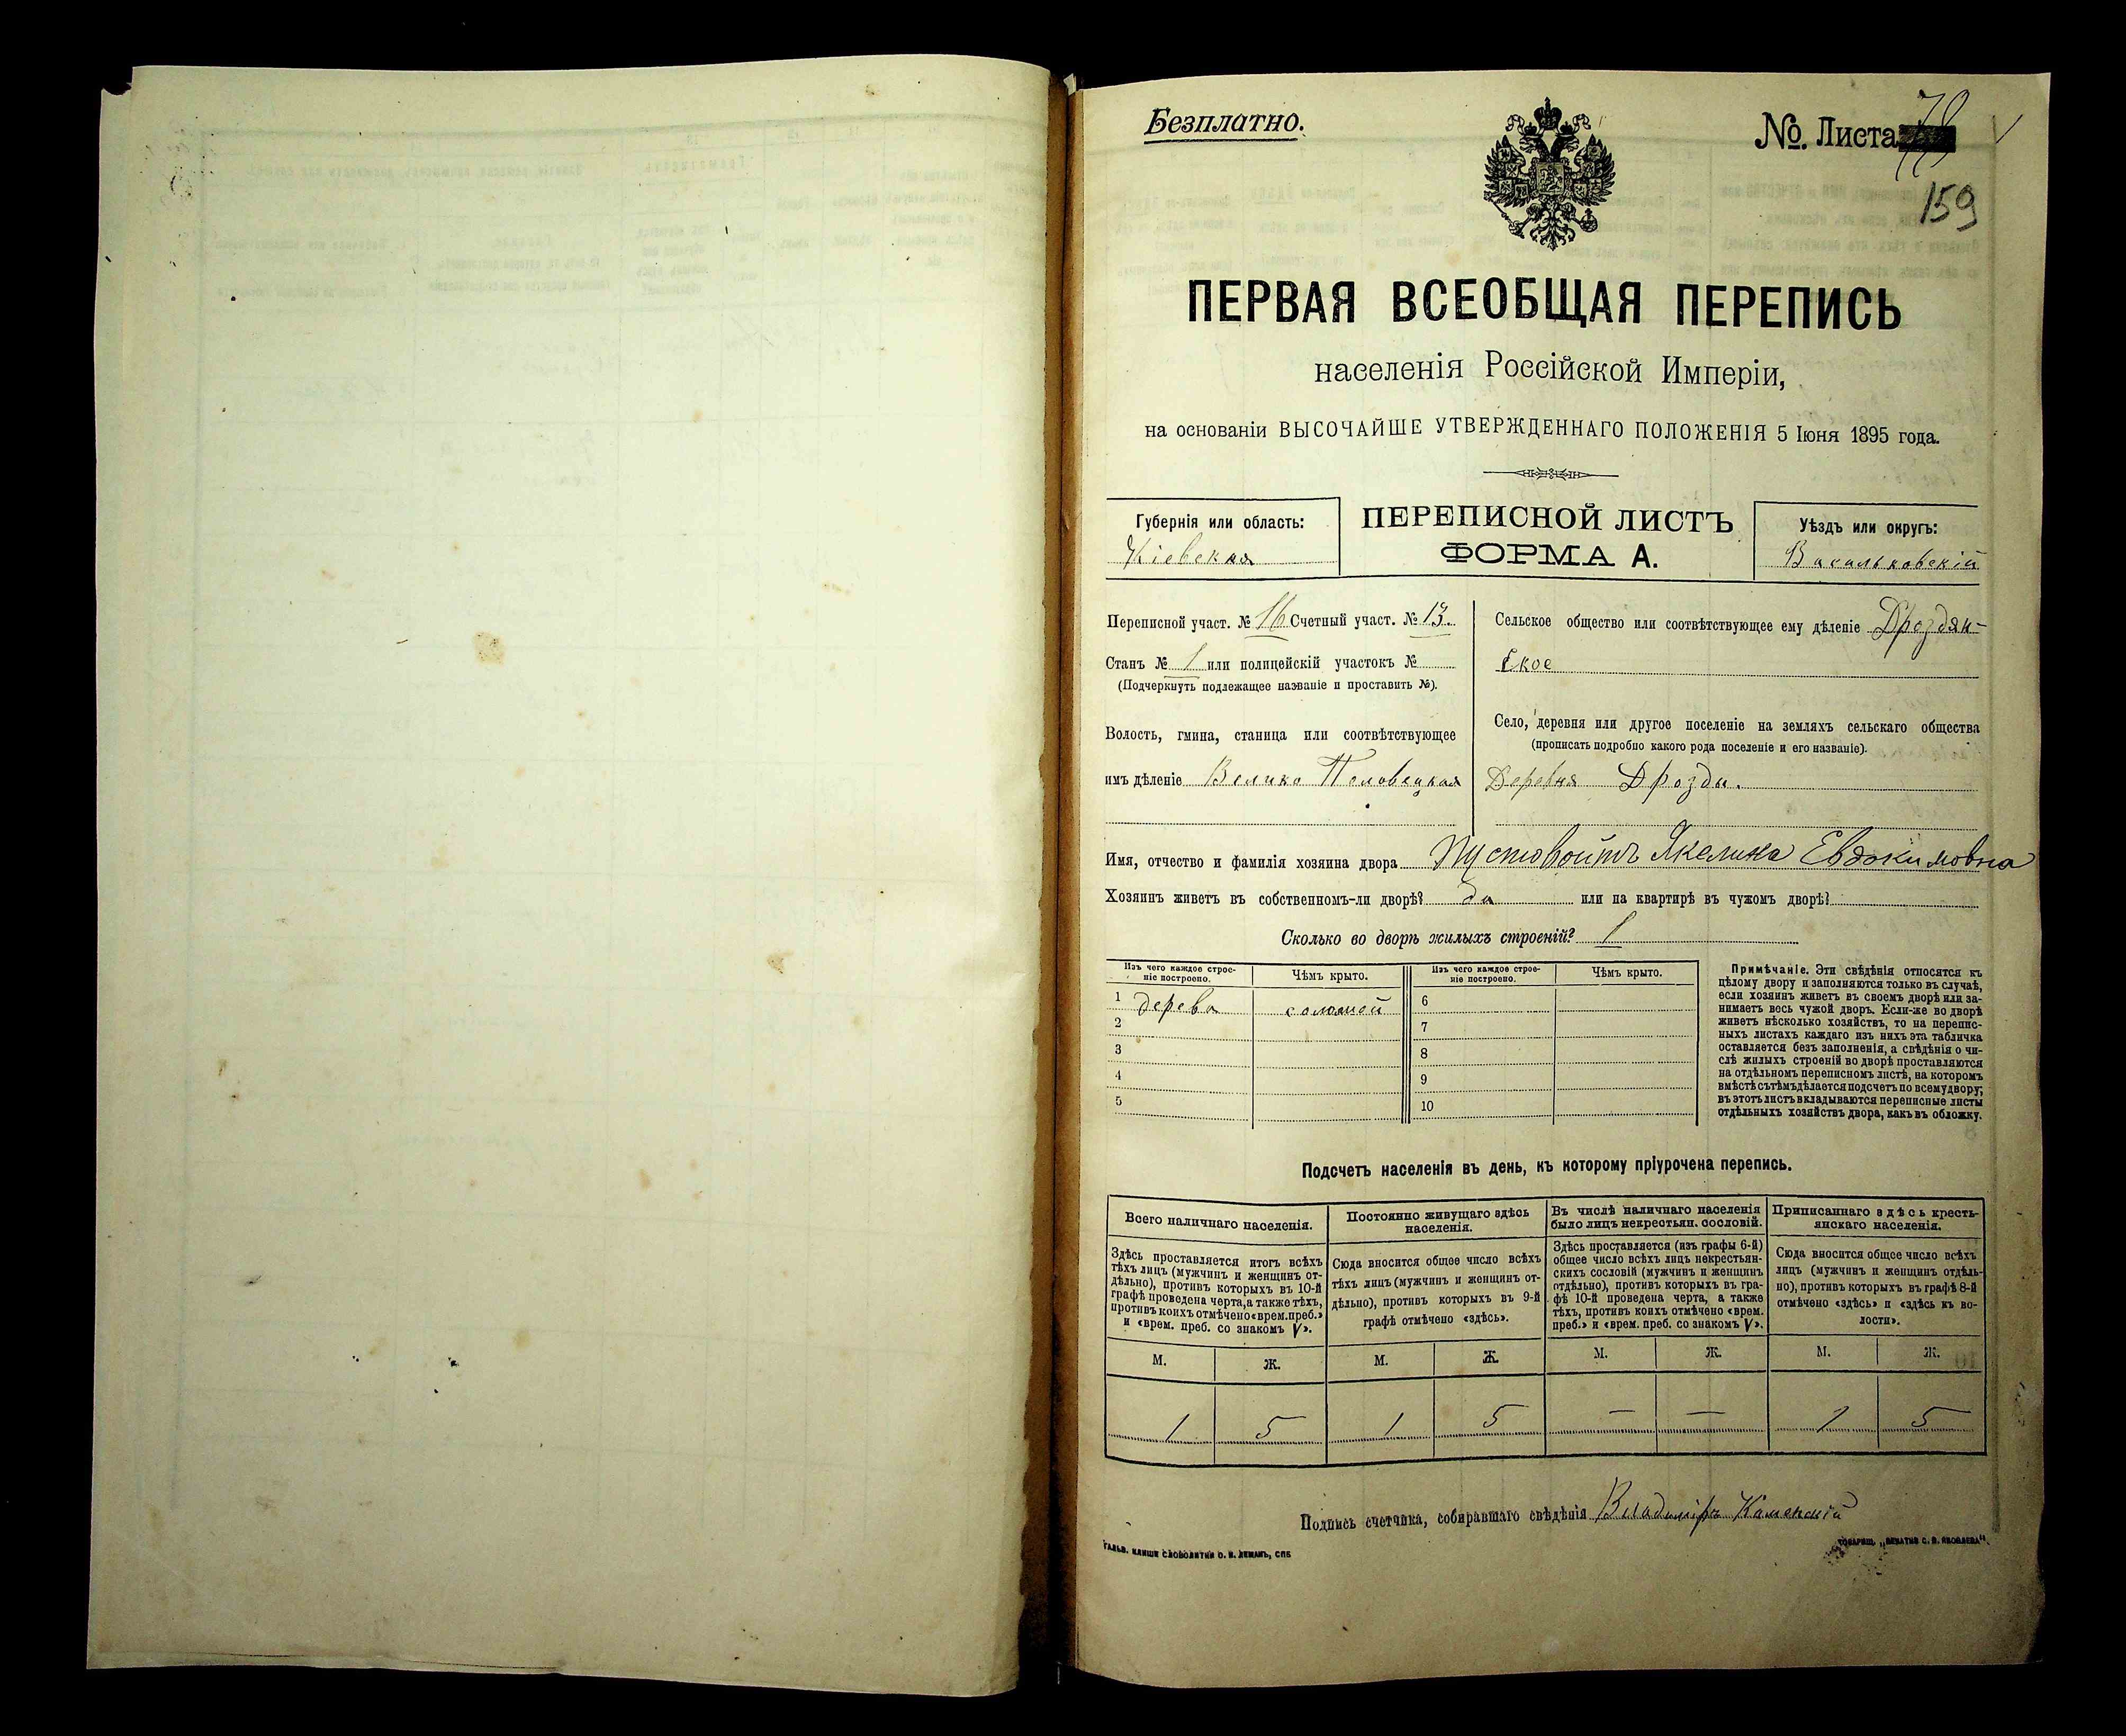 Безплатно.
№. Листа
159
ПЕРВАЯ ВСЕОБЩАЯ ПЕРЕПИСЬ
населенія Россійской Имперіи,
на основаніи ВЫСОЧАЙШЕ УТВЕРЖДЕННАГО ПОЛОЖЕНІЯ 5 Іюня 1895 года.
Губернія или область:
Кіевская
ПЕРЕПИСНОЙ ЛИСТЪ
ФОРМА А.
Уѣздъ или округъ:
Васильковскій
Переписной участ. № 16 Счетный участ. № 13.
Станъ № 1 или полицейскій участокъ №
(Подчеркнуть подлежащее названіе и проставить №).
Волость, гмина, станица или соотвѣтствующее
имъ дѣленіе Велико Половецкая
Сельское общество или соотвѣтствующее ему дѣленіе Дроздян-
ское
Село, деревня или другое поселеніе на земляхъ сельскаго общества
(прописать подробно какого рода поселеніе и его названіе).
Деревня Дрозды.
Имя, отчество и фамилія хозяина двора Пустовойтъ Евдокимовна
Хозяинъ живетъ въ собственномъ-ли дворѣ? да или на квартирѣ въ чужомъ дворѣ?
Сколько во дворѣ жилыхъ строеній? 1
Изъ чего каждое строе-
ніе построено.
Чѣмъ крыто.
Изъ чего каждое строе-
ніе построено.
Чѣмъ крыто.
1 дерева соломой 6
2 7
3 8
4 9
5 10
Примѣчаніе. Эти свѣдѣнія относятся къ
цѣлому двору и заполняются только въ случаѣ,
если хозяинъ живетъ въ своемъ дворѣ или за-
нимаетъ весь чужой дворъ. Если-же во дворѣ
живетъ нѣсколько хозяйствъ, то на перепис-
ныхъ листахъ каждаго изъ нихъ эта табличка
оставляется безъ заполненія, а свѣдѣнія о чи-
слѣ жилыхъ строеній во дворѣ проставляются
на отдѣльномъ переписномъ листѣ, на которомъ
вмѣстѣ съ тѣмъ дѣлается подсчетъ по всему двору;
въ этотъ листъ вкладываются переписные листы
отдѣльныхъ хозяйствъ двора, какъ въ обложку.
Подсчетъ населенія въ день, къ которому пріурочена перепись.
Всего наличнаго населенія.
Здѣсь проставляется итогъ всѣхъ
тѣхъ лицъ (мужчинъ и женщинъ от-
дѣльно), противъ которыхъ въ 10-й
графѣ проведена черта, а также тѣхъ,
противъ коихъ отмѣчено «врем. преб.»
и «врем. преб. со знакомъ V».
Постоянно живущаго здѣсь
населенія.
Сюда вносится общее число всѣхъ
тѣхъ лицъ (мужчинъ и женщинъ от-
дѣльно), противъ которыхъ въ 9-й
графѣ отмѣчено «здѣсь».
Въ числѣ наличнаго населенія
было лицъ некрестьян. сословій.
Здѣсь проставляется (изъ графы 6-й)
общее число всѣхъ лицъ некрестьян-
скихъ сословій (мужчинъ и женщинъ
отдѣльно), противъ которыхъ въ гра-
фѣ 10-й проведена черта, а также
тѣхъ, противъ коихъ отмѣчено «врем.
преб.» и «врем. преб. со знакомъ V».
Приписаннаго здѣсь кресть-
янскаго населенія.
Сюда вносится общее число всѣхъ
лицъ (мужчинъ и женщинъ отдѣль-
но), противъ которыхъ въ графѣ 8-й
отмѣчено «здѣсь» и «здѣсь въ во-
лости».
М. Ж. М. Ж. М. Ж. М. Ж.
1 5 1 5 — — 1 5
Подпись счетчика, собиравшаго свѣдѣнія Владиміръ Каменскій
ГАЛЬВ. КЛИШЕ СЛОВОЛИТНИ О. И. ЛЕМАНЪ, СПБ
ТОВАРИЩ. „ПЕЧАТНЯ С. П. ЯКОВЛЕВА“.